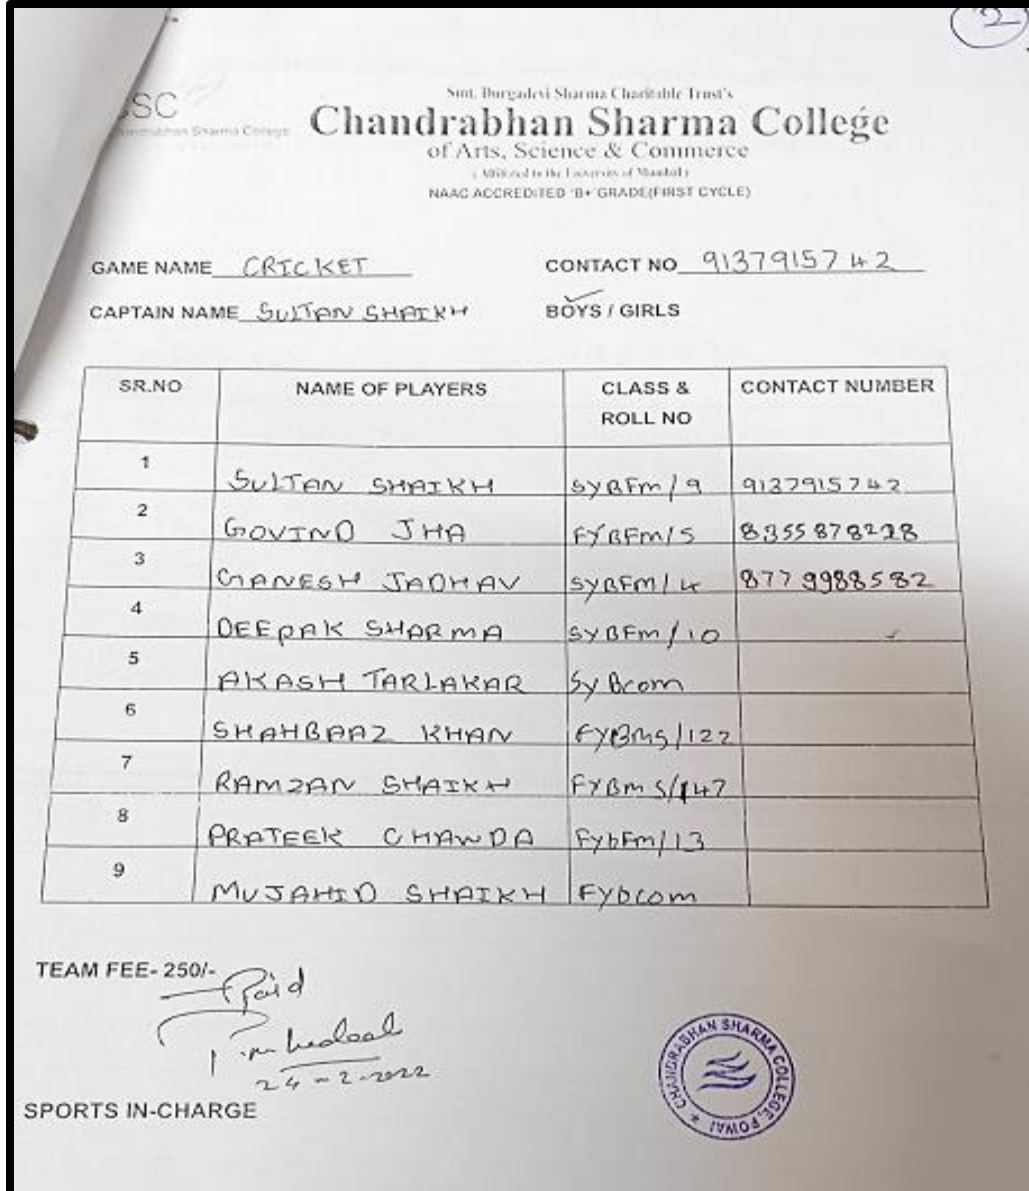 2
CSC
Chandrabhan Sharma College
Smt. Durgadevi Sharma Charitable Trust's
Chandrabhan Sharma College
of Arts, Science & Commerce
( Affiliated to the University of Mumbai )
NAAC ACCREDITED 'B+' GRADE(FIRST CYCLE)
GAME NAME CRICKET CONTACT NO 9137915742
CAPTAIN NAME SULTAN SHAIKH BOYS / GIRLS
SR.NO NAME OF PLAYERS CLASS & ROLL NO CONTACT NUMBER
1 SULTAN SHAIKH SYBFm/9 9137915742
2 GOVIND JHA FYBFm/5 8355878228
3 GANESH JADHAV SYBFm/4 8779988582
4 DEEPAK SHARMA SYBFm/10
5 AKASH TARLAKAR Sy Bcom
6 SHAHBAAZ KHAN FYBMS/122
7 RAMZAN SHAIKH FYBMS/147
8 PRATEEK CHAWDA FybFm/13
9 MUJAHID SHAIKH Fybcom
TEAM FEE- 250/- Paid
24-2-2022
SPORTS IN-CHARGE
CHANDRABHAN SHARMA COLLEGE, POWAI